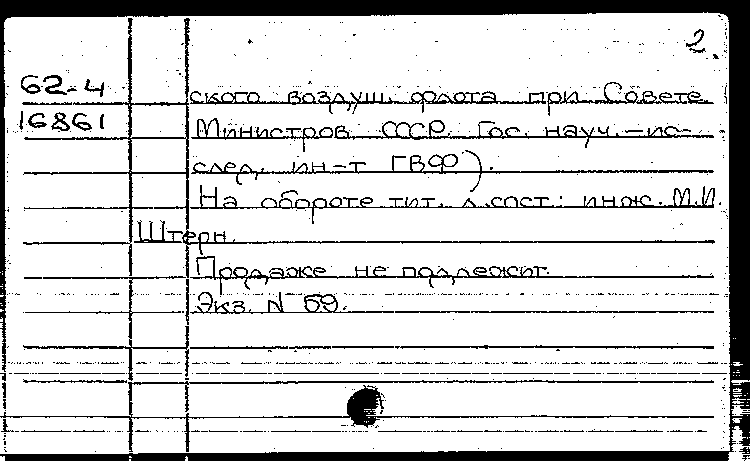 2.
62-4 ского воздуш. флота при Совете
16861 Министров СССР. Гос. науч.-ис-
след. ин-т ГВФ).
На обороте тит. л. сост.: инж. М.И.
Штерн.
Продаже не подлежит.
Экз. N 59.